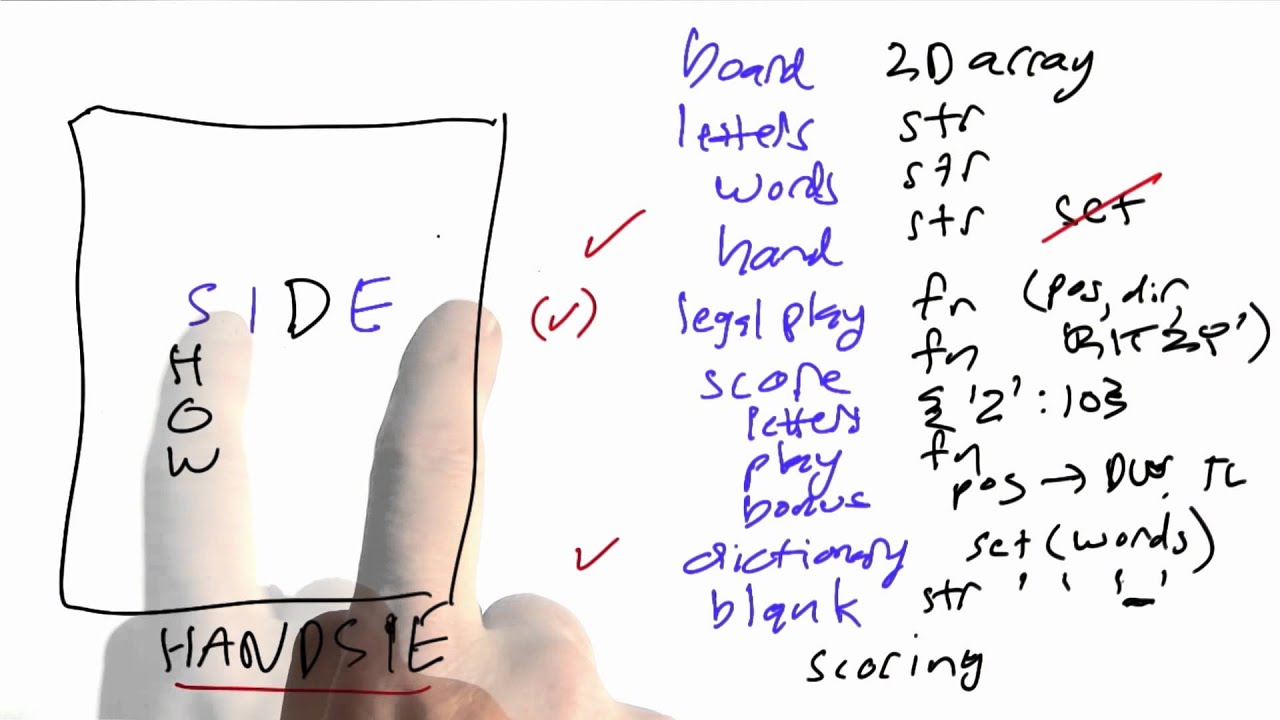 SIDE
H
O
W
HANDSIE
board 2D array
letters str
words str
hand str set
legal play fn (pos, dir,
score fn 'RITZY')
letters {'Z':10}
play fn
bonus pos → DW, TL
dictionary set(words)
blank str ' ' '_'
scoring